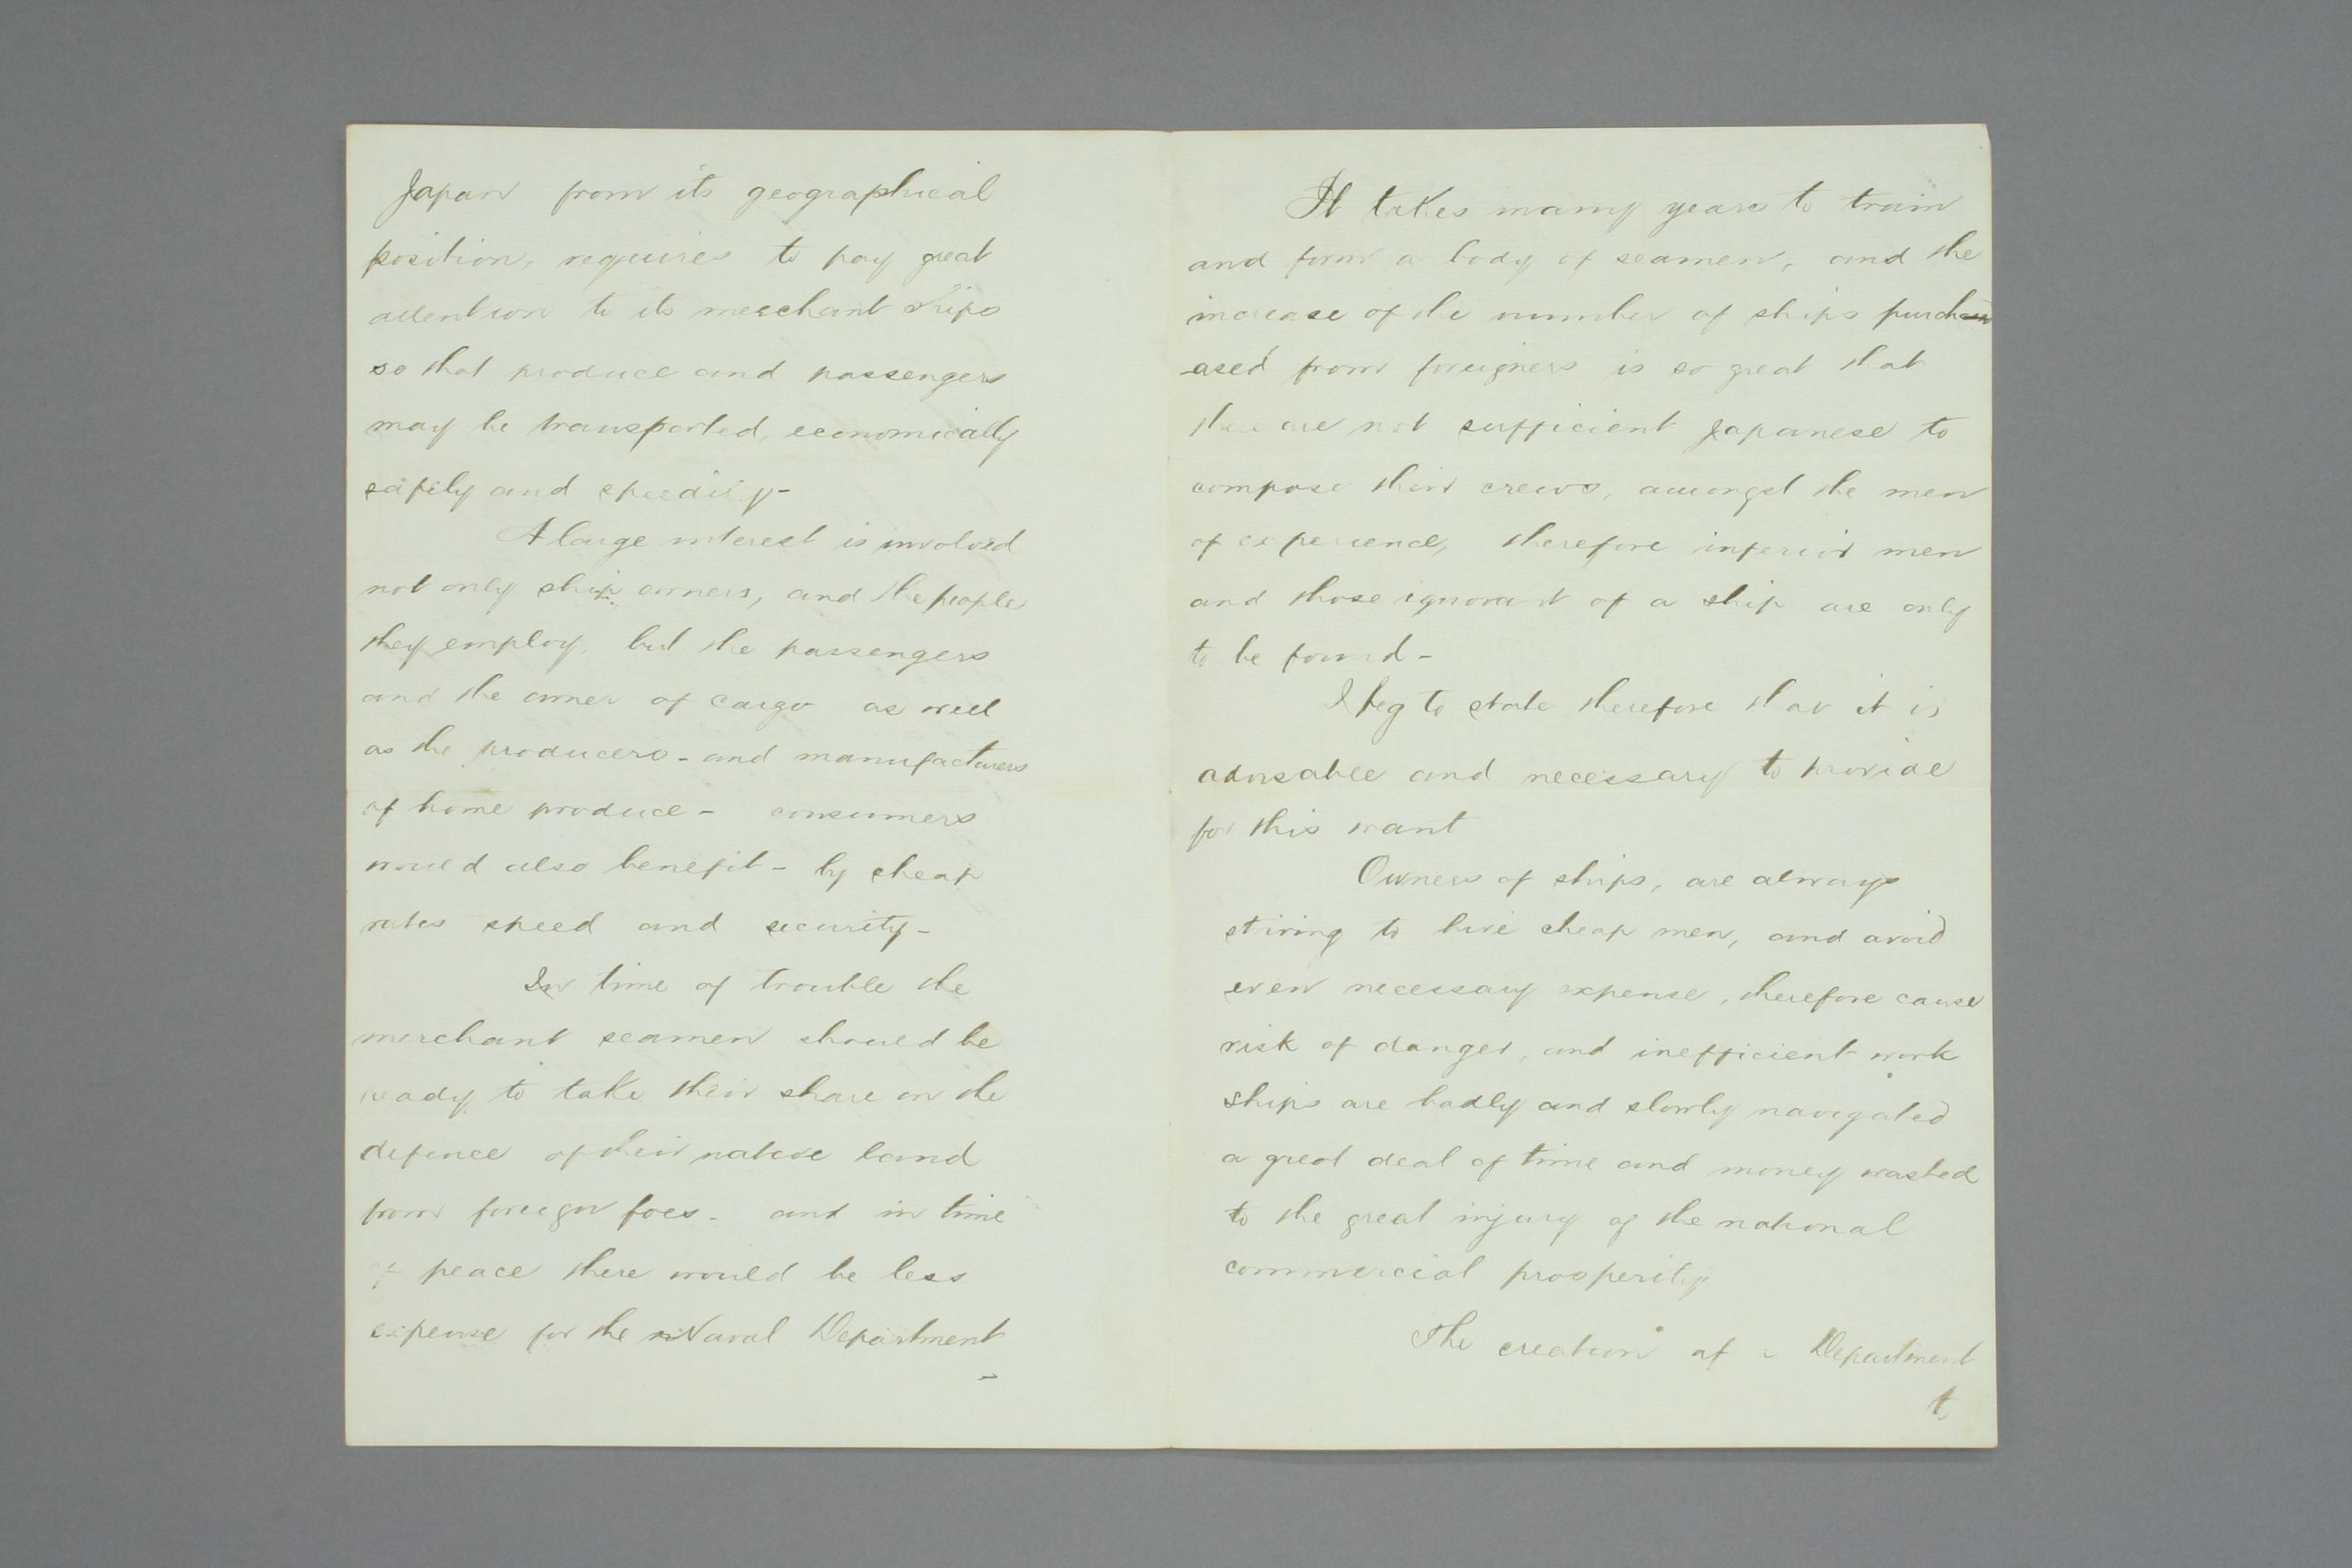 Japan from its geographical
position, requires to pay great
attention to its merchant ships
so that produce and passengers
may be transported, economically
safely and speedily-
A large interest is involved
not only ship owners, and the people
they employ, but the passengers
and the owner of cargo as well
as the producers - and manufacturers
of home produce - consumers
would also benefit - by cheap
rates speed and security -
In time of trouble the
merchant seamen should be
ready to take their share in the
defence of their native land
from foreign foes - and in time
of peace there would be less
expense for the Naval Department
-
It takes many years to train
and form a body of seamen, and the
increase of the number of ships purch
-ased from foreigners is so great that
there are not sufficient Japanese to
compose their crews, amongst the men
of experience, therefore inferior men
and those ignorant of a ship are only
to be found -
I beg to state therefore that it is
advisable and necessary to provide
for this want
Owners of ships, are always
striving to hire cheap men, and avoid
even necessary expense, therefore cause
risk of danger, and inefficient work
ships are badly and slowly navigated
a great deal of time and money wasted
to the great injury of the national
commercial prosperity
The creation of a Department
to